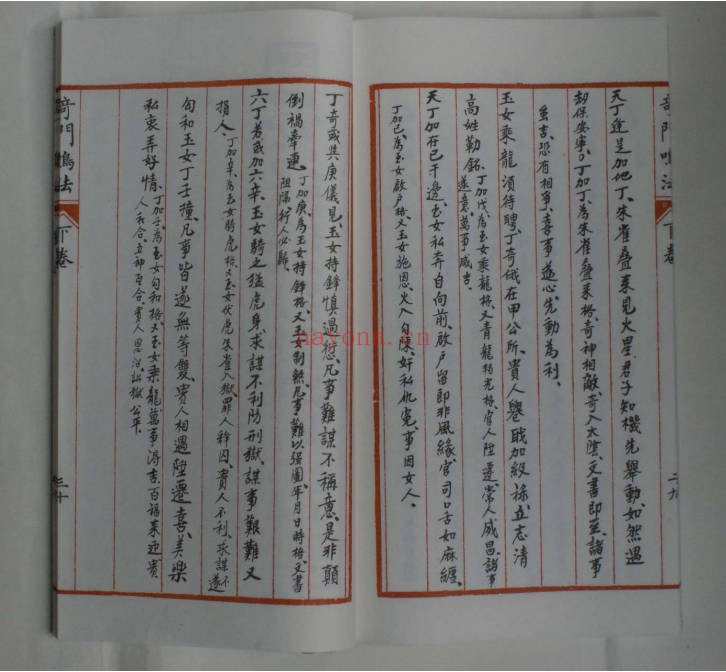 奇門鳴法
下卷
二九
天丁逢是加地丁、朱雀疊萊見火星、君子知機先舉動、如然遇
刼保安寧。丁加丁、為朱雀疊萊格、奇神相敵、奇入太陰、文書即至、諸事
虽吉、恐有相爭、喜事遂心、先動為利。
玉女乘龍須待聘、丁奇儀在甲公所、貴人戰加級祿、立志清
高姓勒銘、丁加戊、為玉女乘龍格、又青龍轉光格、官人陞遷、常人威昌、諸事
遂意、萬事咸吉。
天丁加在已干邊、玉女私奔自向前、啟戶留即非風緣、官司口舌如麻纏、
丁加己、為玉女啟戶格、又玉女施恩、火入勾陳、奸私仇寃、事因女人。
丁奇或共庚儀見、玉女持鋒慎過愆、凡事難謀不稱意、是非顛
倒禍牽連、丁加庚、為玉女持鋒格、又玉女制煞、凡事難以強圖、年月日時格、文書
阻隔、行人必歸。
六丁若或加六辛、玉女騎之猛虎身、求謀不利防刑獄、謀事艱難又
損人、丁加辛、為玉女騎虎格、又玉女伏虎、朱雀入獄、罪人釋囚、貴人不利、求謀不
遂
勾和玉女丁壬撞、凡事皆遂無等雙、貴人相遇陞遷喜、美樂
私衷弄好情、丁加壬、為玉女勾和格、又玉女乘龍、萬事得吉、百福来迎、貴
人和合、五神互合、貴人恩詔、訟獄公平。
奇門鳴法
下卷
三十
nayona.cn